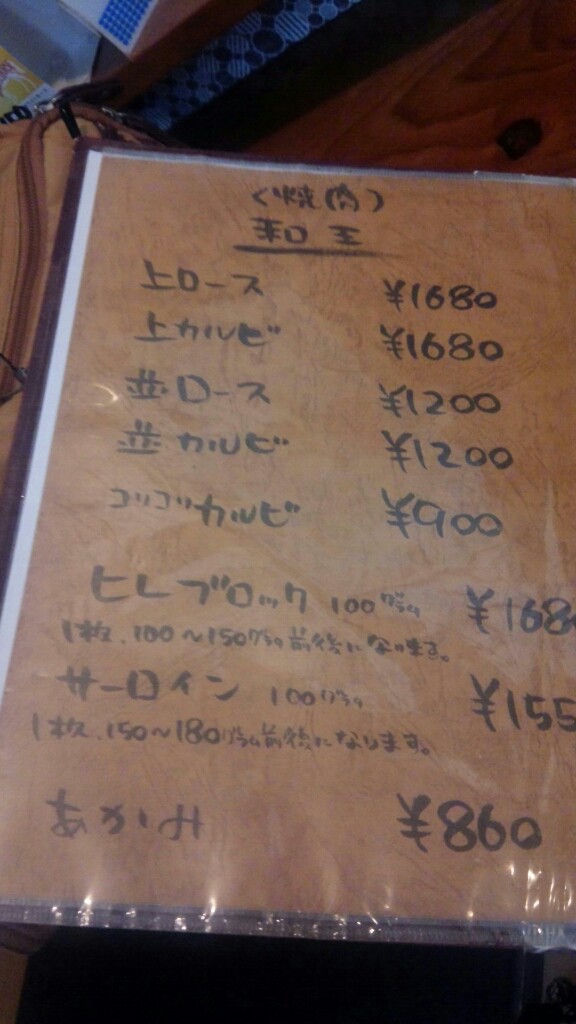 <焼肉>
和王
上ロース ¥1680
上カルビ ¥1680
並ロース ¥1200
並カルビ ¥1200
コリコリカルビ ¥900
ヒレブロック 100グラム ¥168
1枚.100~150グラム前後になります。
サーロイン 100グラム ¥155
1枚.150~180グラム前後になります。
あかみ ¥860